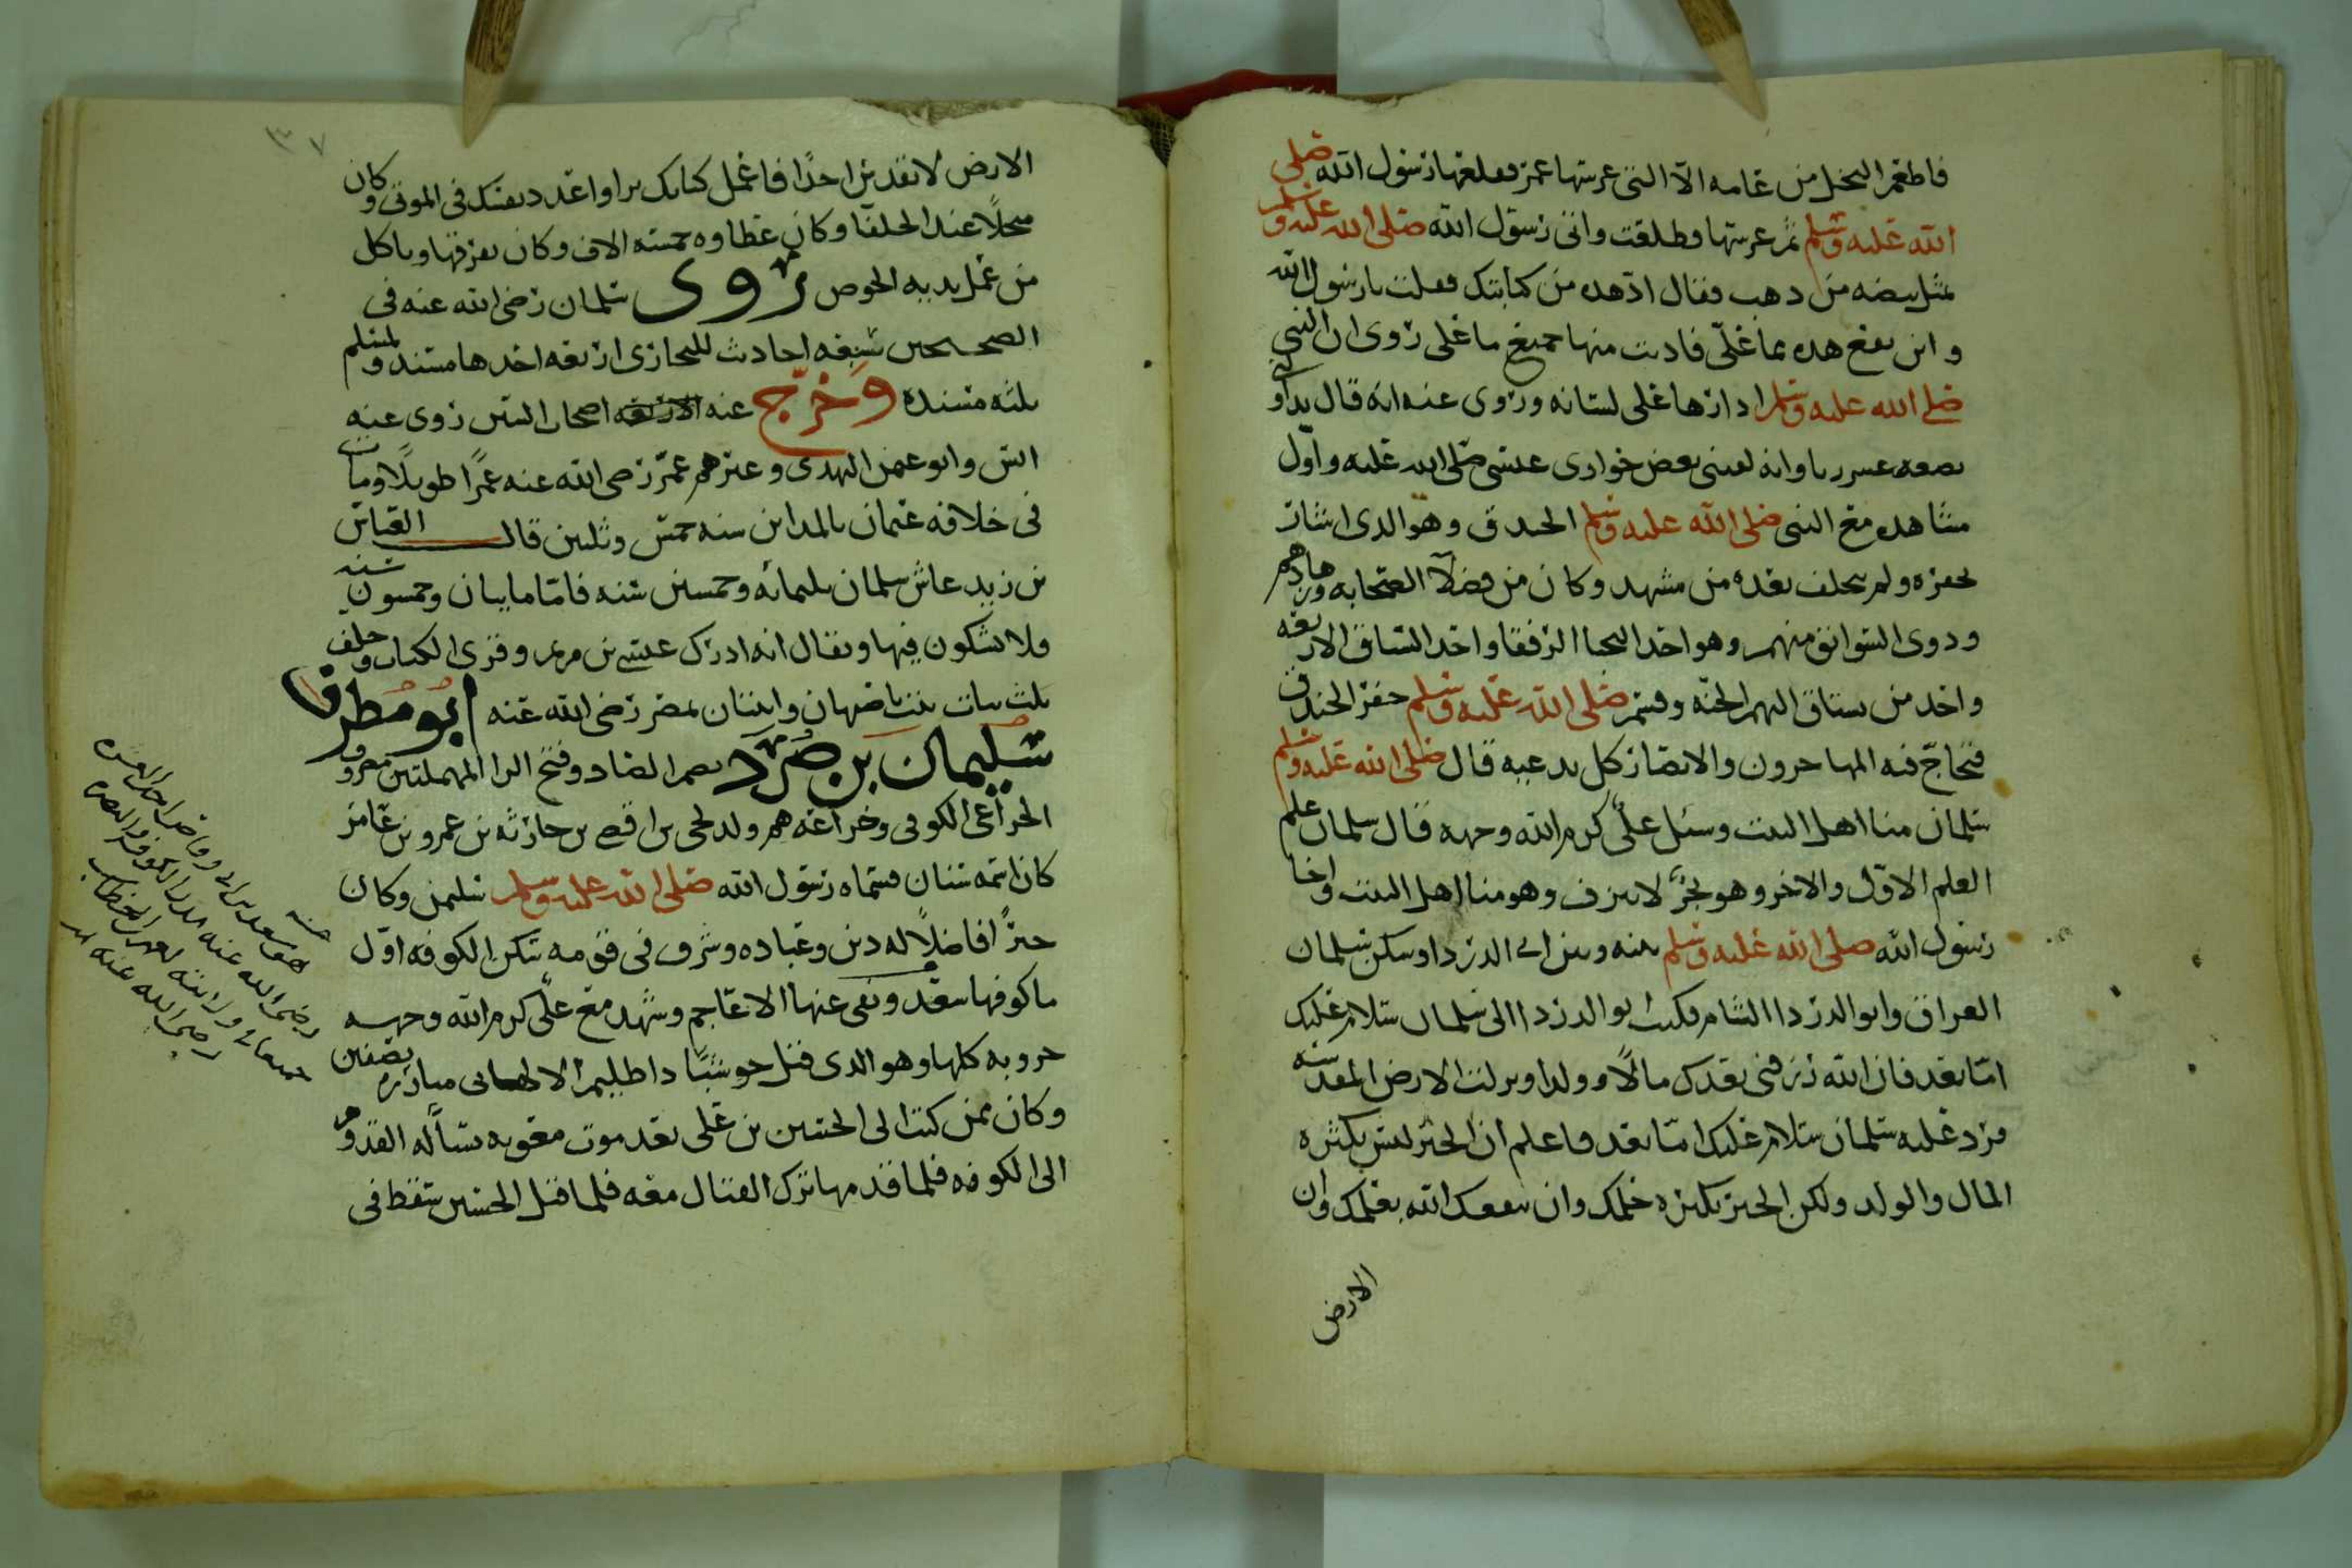 فاطعم النخل من عامه الا التي غرسها عمر فقلعها رسول الله صلى
الله عليه وسلم ثم غرسها فطلعت واتى رسول الله صلى الله عليه وسلم
بمثل بيضه من ذهب فقال اد هذه من كتابتك فقلت يارسول الله
واين تقع هذه مما علي فاديت منها جميع ما علي روى ان النبي
صلى الله عليه وسلم ادارها على لسانه وروى عنه انه قال تداولني
بضعه عشر ربا وانه لقيني بعض حواري عيسى صلى الله عليه واول
مشاهده مع النبي صلى الله عليه وسلم الخندق وهو الذي اشار
بحفره ولم يتخلف بعده من مشهد وكان من فضلا الصحابه وزهادهم
وذوى السوابق منهم وهو احد النجبا الرفقا واحد السباق الاربعه
واحد من تستاق اليهم الجنه وقسم صلى الله عليه وسلم حفر الخندق
فتحاج فيه المهاجرون والانصار كل يدعيه قال صلى الله عليه وسلم
سلمان منا اهل البيت وسئل علي كرم الله وجهه قال سلمان علم
العلم الاول والاخر وهو بحر لا ينزف وهو منا اهل البيت واخا
رسول الله صلى الله عليه وسلم بينه وبين ابي الدردا وسكن سلمان
العراق وابو الدردا الشام فكتب ابو الدردا الى سلمان سلام عليك
اما بعد فان الله رزقني بعدك مالا وولدا ونزلت الارض المقدسه
فرد عليه سلمان سلام عليك اما بعد فاعلم ان الخير ليس بكثره
المال والولد ولكن الخير بكثره حلمك وان ينفعك الله بعلمك وان
الارض
٣٧
الارض لا تقدس احدا فاعمل كانك ترا واعدد نفسك في الموتى وكان
مبجلا عند الخلفا وكان عطاوه خمسه الاف وكان يفرقها وياكل
من عمل يديه الخوص روى سلمان رضي الله عنه في
الصحيحين سبعه احاديث للبخاري اربعه احدها مسند ولمسلم
ثلثه مسنده وخرج عنه الاربعه اصحاب السنن روى عنه
انس وابو عثمن النهدي وغيرهم عمر رضي الله عنه عمرا طويلا ومات
في خلافه عثمان بالمداين سنه خمس وثلثين قال العباس
بن زيد عاش سلمان ثلثمائه وخمسين سنه فاما مايتان وخمسون سنه
فلا يشكون فيها ويقال انه ادرك عيسى بن مريم وقرى الكتاب وخلف
ثلث بنات بنت باصبهان وابنتان بمصر رضي الله عنه ابو مطرف
سليمان بن صرد بضم الصاد وفتح الرا المهملتين معروف
الخزاعي الكوفي وخزاعه هم ولد لحي بن اقصى بن حارثه بن عمرو بن عامر
كان اسمه سنان فسماه رسول الله صلى الله عليه وسلم سليمن وكان
خيرا فاضلا له دين وعباده وشرف في قومه سكن الكوفه اول
ما كوفها سعد ونفى عنها الاعاجم وشهد مع علي كرم الله وجهه
حروبه كلها وهو الذي قتل حوشبا ذا ظليم الالهاني مبارزه بصفين
وكان ممن كتب الى الحسين بن علي بعد موت معويه يسأله القدوم
الى الكوفه فلما قدمها ترك القتال معه فلما قتل الحسين سقط في
هو سعد بن ابي وقاص احد العشره
رضي الله عنه
رضي الله عنه